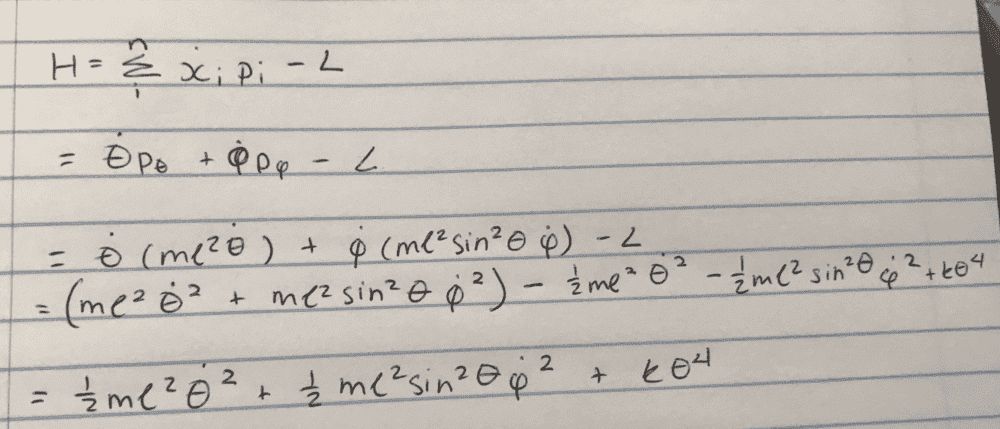 H = Σᵢⁿ ẋᵢ pᵢ - L
= θ̇ p_θ + φ̇ p_φ - L
= θ̇ (mℓ² θ̇) + φ̇ (mℓ² sin² θ φ̇) - L
= (mℓ² θ̇² + mℓ² sin² θ φ̇²) - ½ mℓ² θ̇² - ½ mℓ² sin² θ φ̇² + kθ⁴
= ½ mℓ² θ̇² + ½ mℓ² sin² θ φ̇² + kθ⁴